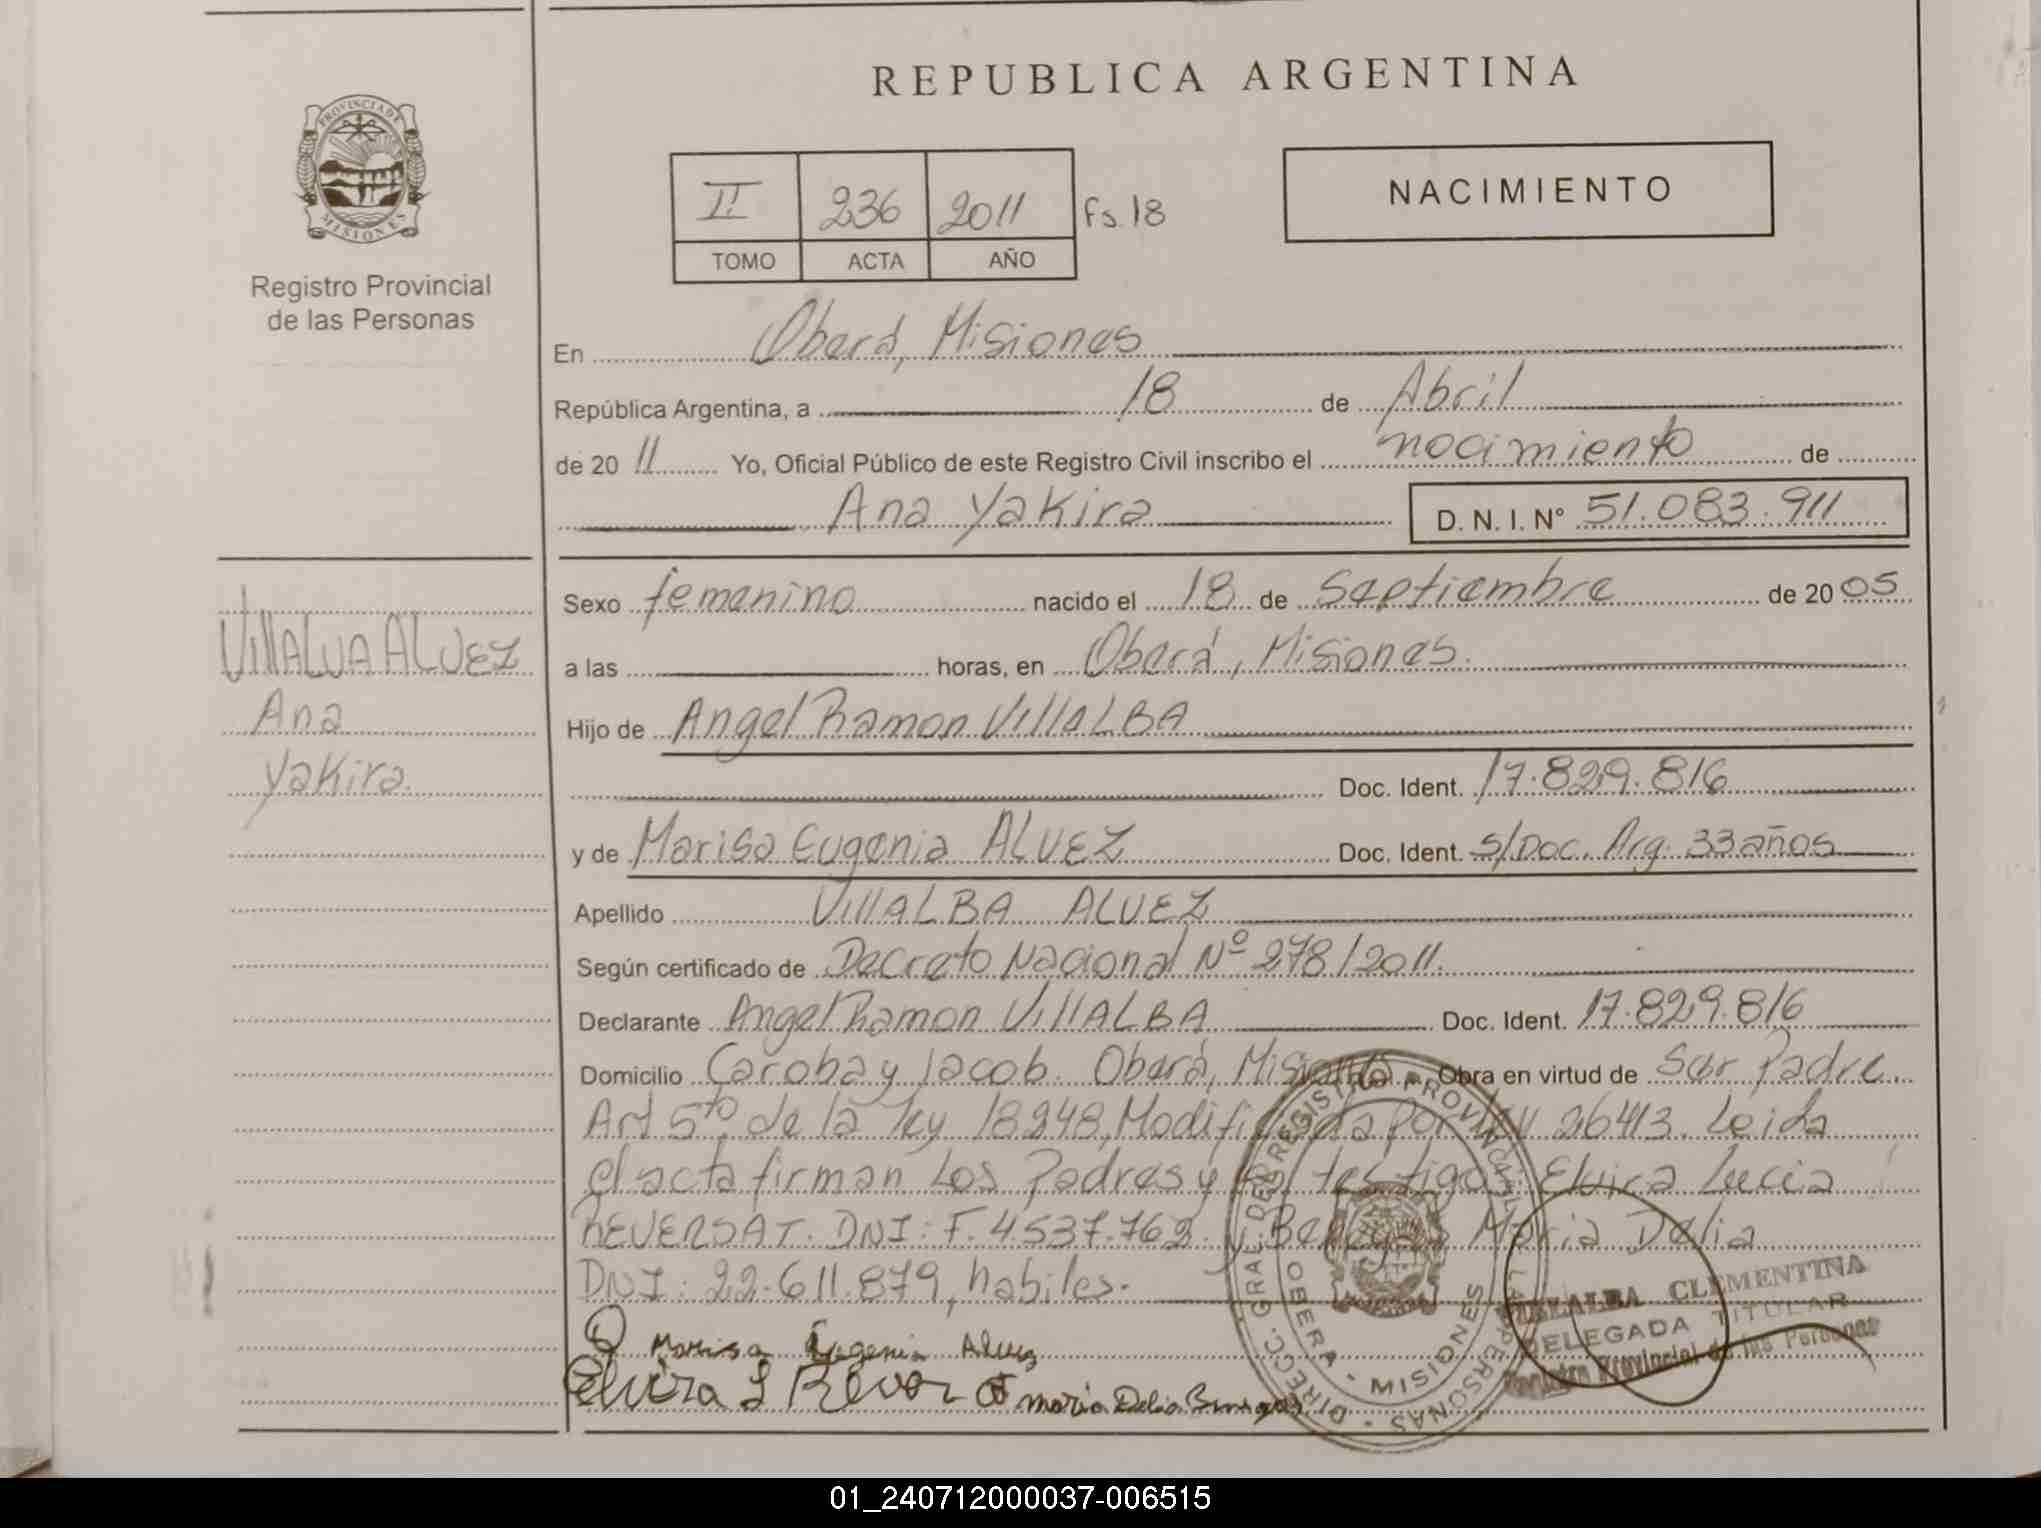 REPUBLICA ARGENTINA
PROVINCIA DE
MISIONES
Registro Provincial
de las Personas
II 236 2011 Fs. 18
TOMO ACTA AÑO
NACIMIENTO
En Oberá, Misiones
República Argentina, a 18 de Abril
de 2011 Yo, Oficial Público de este Registro Civil inscribo el nacimiento de
Ana Yakira D. N. I. N° 51.083.911
Sexo femenino nacido el 18 de Septiembre de 2005
a las horas, en Oberá, Misiones.
Hijo de Angel Ramon VillALBA
Doc. Ident. 17.829.816
y de Marisa Eugenia ALVEZ Doc. Ident. s/Doc. Arg. 33 años
Apellido VillALBA ALVEZ
Según certificado de Decreto Nacional Nº 278/2011.
Declarante Angel Ramon VillALBA Doc. Ident. 17.829.816
Domicilio Caroba y Jacob. Oberá, Misiones Obra en virtud de Ser Padre.
Art 5to de la ley 18248, Modificada por ley 26413. Leida
el acta firman Los Padres y testigos Elvira Lucia
REVERSAT. DNI: F. 4.537.762. y María Delia
DNI: 22.611.879, habiles.
VillALVA ALVEZ
Ana
Yakira.
Marisa Eugenia Alvez
Elvira L
maria Delia
DIRECC. GRAL DEL REGISTRO PROVINCIAL DE LAS PERSONAS
OBERA - MISIONES
VILLALBA CLEMENTINA
DELEGADA TITULAR
Registro Provincial de las Personas
01_240712000037-006515